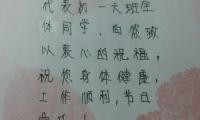 代表初一六班全
体同学,向您致
以衷心的祝福,
祝您身体健康,
工作顺利,节日